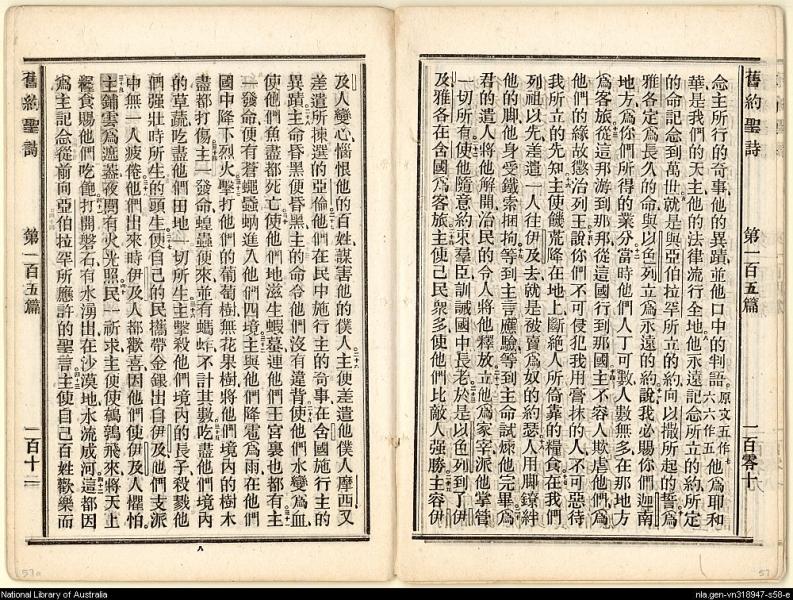 舊約聖詩 第一百五篇 一百零十
念主所行的奇事他的異蹟並他口中的判語原文五作六六作五他爲耶和
華是我們的天主他的法律流行全地他永遠記念所立的約所定
的命記念到萬世就是與亞伯拉罕所立的約向以撒所起的誓爲
雅各定爲長久的命與以色列立爲永遠的約說我必賜你們迦南
地方爲你們所得的業分當時他們人丁可數人數無多在那地方
爲客旅從這那游到那那從這國行到那國主不容人欺虐他們爲
他們的緣故懲治列王說你們不可侵犯我用膏抹的人不可惡待
我所立的先知主使饑荒降在地上斷絕人所倚靠的糧食在我們
列祖以先差遣一人往伊及去就是被賣爲奴的約瑟人用脚鐐絆
他的脚他身受鐵索捆拘等到主言應驗等到主命試煉他完畢
君的遣人將他解開治民的令人將他釋放立他爲家宰派他掌管
一切所有使他隨意約束羣臣訓誡國中長老於是以色列到了伊
及雅各在含國爲客旅主使己民衆多使他們比敵人強勝主容伊
及人變心惱恨他的百姓謀害他的僕人主便差遣他僕人摩西又
差遣所揀選的亞倫他們在民中施行主的奇事在含國施行主的
異蹟主命昏黑便昏黑主的命令他們沒有違背使他們水變爲血
使他們魚盡都死亡使他地滋生蝦蟇連他們王宮裏也都有主
一發命便有蒼蠅蟁蚋進入他們四境主與他們降雹爲雨在他們
國中降下烈火擊打他們的葡萄樹無花果樹將他們境內的樹木
盡都打傷主一發命蝗蟲便來並有螞蚱不計其數吃盡他們境內
的草蔬吃盡他們田地一切所生主擊殺他們境內的長子殺戮他
們强壯時所生的頭生使自己的民攜帶金銀出自伊及他們支派
中無一人疲倦他們出來時伊及人都歡喜因他們使伊及人懼怕
主鋪雲爲遮蓋夜間有火光照民一祈求主便使鵪鶉飛來將天上
糧食賜他們吃飽打開磐石有水湧出在沙漠地水流成河這都因
爲主記念從前向亞伯拉罕所應許的聖言主使自己百姓歡樂而
舊約聖詩 第一百五篇 一百十一
National Library of Australia
nla.gen-vn318947-s58-e